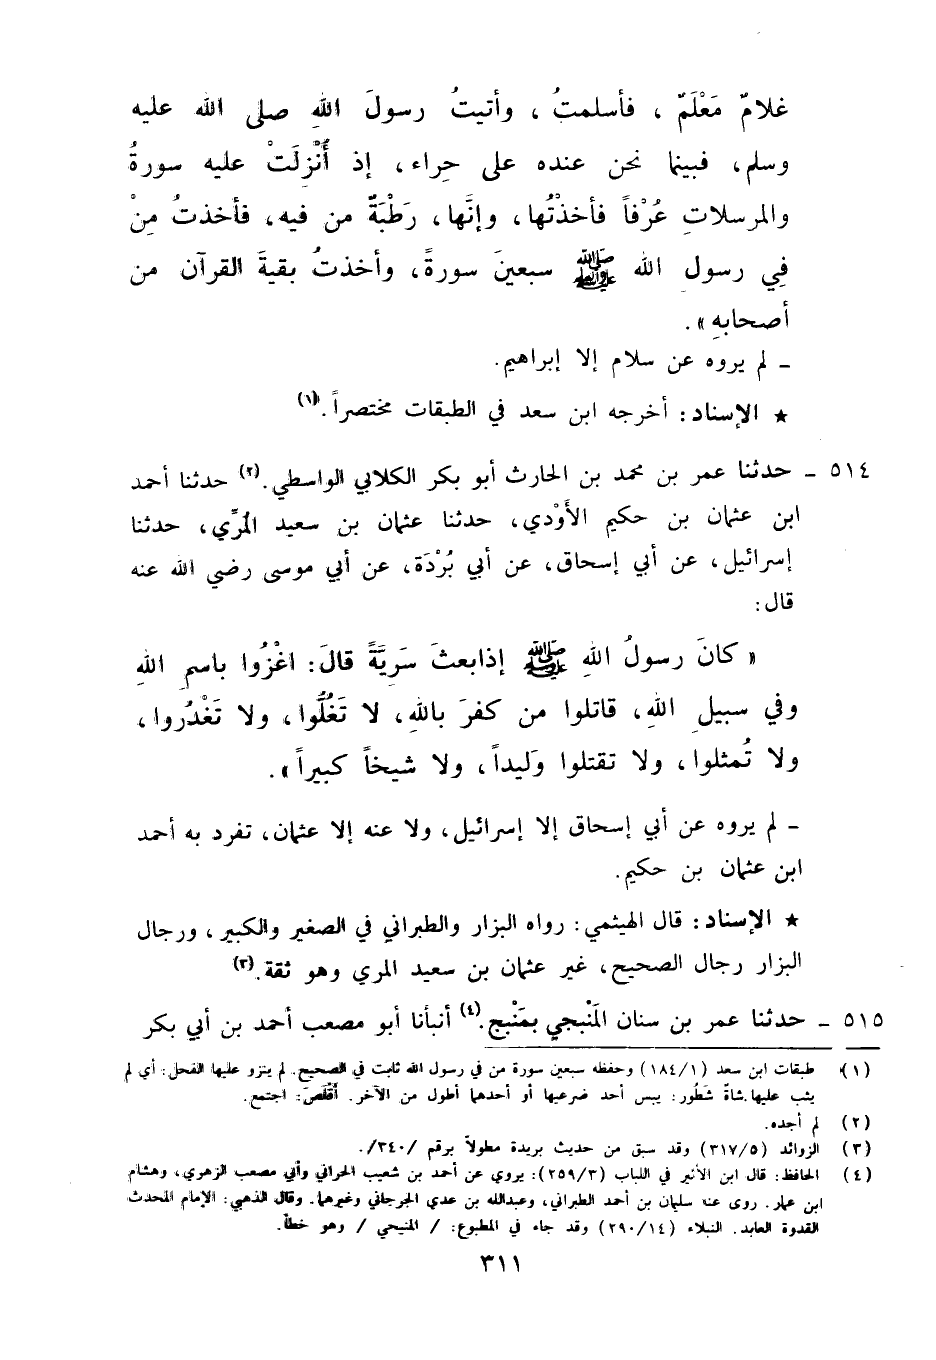 غلامٌ مَعْلَمٌ ، فأسلمتُ ، وأتيتُ رسولَ اللهِ صلى الله عليه
وسلم، فبينما نحن عنده على حِراء، إذ أُنْزِلَتْ عليه سورةُ
والمرسلاتِ عُرْفاً فأخذْتُها، وإنَّها، رَطْبَةٌ من فيه، فأخذتُ مِنْ
فِي رسولِ الله ﷺ سبعينَ سورةً، وأخذتُ بقيةَ القرآن من
أصحابهِ».
ـ لم يروه عن سلام إلا إبراهيم.
★ الإسناد: أخرجه ابن سعد في الطبقات مختصراً.(١)
٥١٤ ـ حدثنا عمر بن محمد بن الحارث أبو بكر الكلابي الواسطي.(٢) حدثنا أحمد
ابن عثمان بن حكيم الأَوْدي، حدثنا عثمان بن سعيد المُرِّي، حدثنا
إسرائيل، عن أبي إسحاق، عن أبي بُرْدَة، عن أبي موسى رضي الله عنه
قال:
« كانَ رسولُ اللهِ ﷺ إذابعثَ سَرِيَّةً قالَ: اغْزُوا باسمِ اللهِ
وفي سبيلِ اللهِ، قاتلوا من كفرَ باللهِ، لا تَغُلُّوا، ولا تَغْدُروا،
ولا تُمثلوا، ولا تقتلوا وَليداً، ولا شيخاً كبيراً».
ـ لم يروه عن أبي إسحاق إلا إسرائيل، ولا عنه إلا عثمان، تفرد به أحمد
ابن عثمان بن حكيم.
★ الإسناد: قال الهيثمي: رواه البزار والطبراني في الصغير والكبير، ورجال
البزار رجال الصحيح، غير عثمان بن سعيد المري وهو ثقة.(٣)
٥١٥ ـ حدثنا عمر بن سنان المَنْبجي بمَنْبج.(٤) أنبأنا أبو مصعب أحمد بن أبي بكر
(١) طبقات ابن سعد (١/١٨٤) وحفظه سبعين سورة من في رسول الله ثابت في الصحيح. لم ينزو عليها الفحل: أي لم
يثب عليها. شاةٌ شَطُور: يبس أحد ضرعيها أو أحدهما أطول من الآخر. أَقْلَصَ: اجتمع.
(٢) لم أجده.
(٣) الزوائد (٣١٧/٥) وقد سبق من حديث بريدة مطولاً برقم /٣٤٠/.
(٤) الحافظ: قال ابن الأثير في اللباب (٢٥٩/٣): يروي عن أحمد بن شعيب الحراني وأبي مصعب الزهري، وهشام
ابن عمار. روى عنه سليمان بن أحمد الطبراني، وعبدالله بن عدي الجرجاني وغيرهما. وقال الذهبي: الإمام المحدث
القدوة العابد. النبلاء (٢٩٠/١٤) وقد جاء في المطبوع: / المنيحي / وهو خطأ.
٣١١